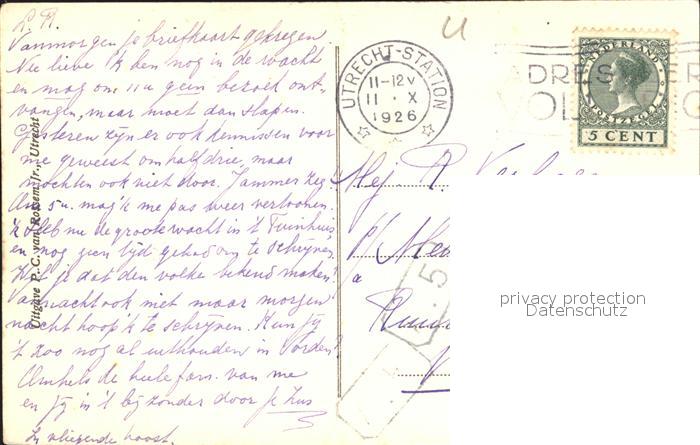 L. R.
Vanmorgen je briefkaart gekregen.
Nu lieve 'k ben nog in de wacht
en mag om 11 u geen bezoek ont-
vangen, maar moet dan slapen.
Gisteren zijn er ook kennissen voor
me geweest om half drie, maar
mochten ook niet door. Jammer zeg
Om 5 u. mag 'k me pas weer vertoonen.
'k Heb nu de groote wacht in 't Tuinhuis,
en nog geen tijd gehad om te schrijven.
Wil je dat den volke bekend maken?
Vannacht ook niet maar morgen
nacht hoop 'k te schrijven. Kun jij
't zoo nog al uithouden in Vorden?
de heele fam. van me
en jij in 't bijzonder door je Zus
vliegende haast.
Uitgave P. C. van Rossem Jr., Utrecht
UTRECHT-STATION
11-12V
11 · X
1926
ADRES
VOL
NEDERLAND
POSTZEGEL
5 CENT
Mej. R.
p/a
5
privacy protection
Datenschutz